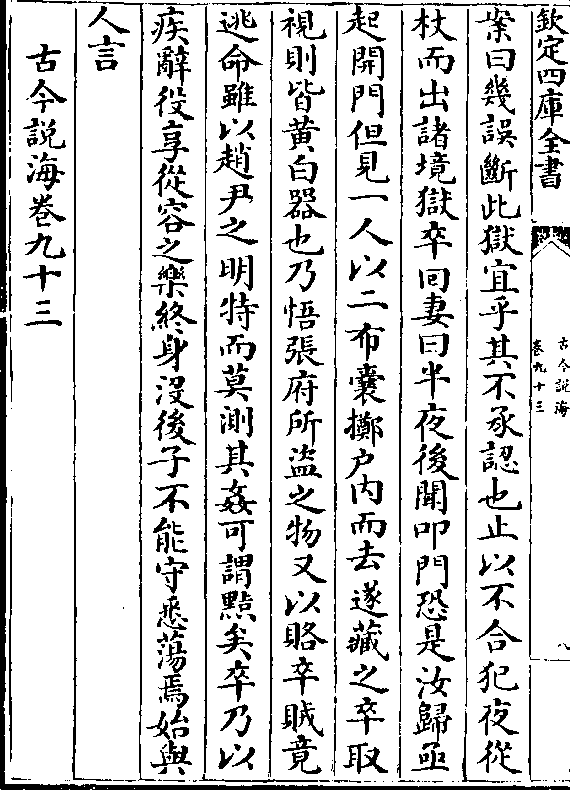 欽定四庫全書
古今説海
卷九十三
八
案曰幾誤斷此獄宜乎其不承認也止以不合犯夜從
杖而出諸境獄卒囘妻曰半夜後聞叩門恐是汝歸亟
起開門但見一人以二布囊擲户内而去遂藏之卒取
視則皆黄白器也乃悟張府所盗之物又以賂卒賊竟
逃命雖以趙尹之明特而莫測其姦可謂黠矣卒乃以
疾辭役享從容之樂終身没後子不能守悉蕩焉始與
人言
古今説海卷九十三